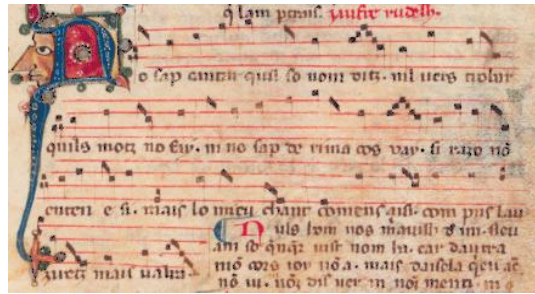 q̃ lam p̃tiriss. Jaufre rudelh.
No sap cantar quil so nom ditz. nil vers trobar
quils motz no fay. ni no sap de rima cos vay. si razo nõ
enten e si. mais lo mieu chant comens aisi. com pus lau
ziretz mais valra
Nuls hom nos mavilh d̃ mi. sieu
am so q̃nq̃r nist nom lu. car dautra
mõ cors ioy nõ a. mais daisela q̃eu ãc
nõ vi. nõz dis ver ni nõz menti. ni